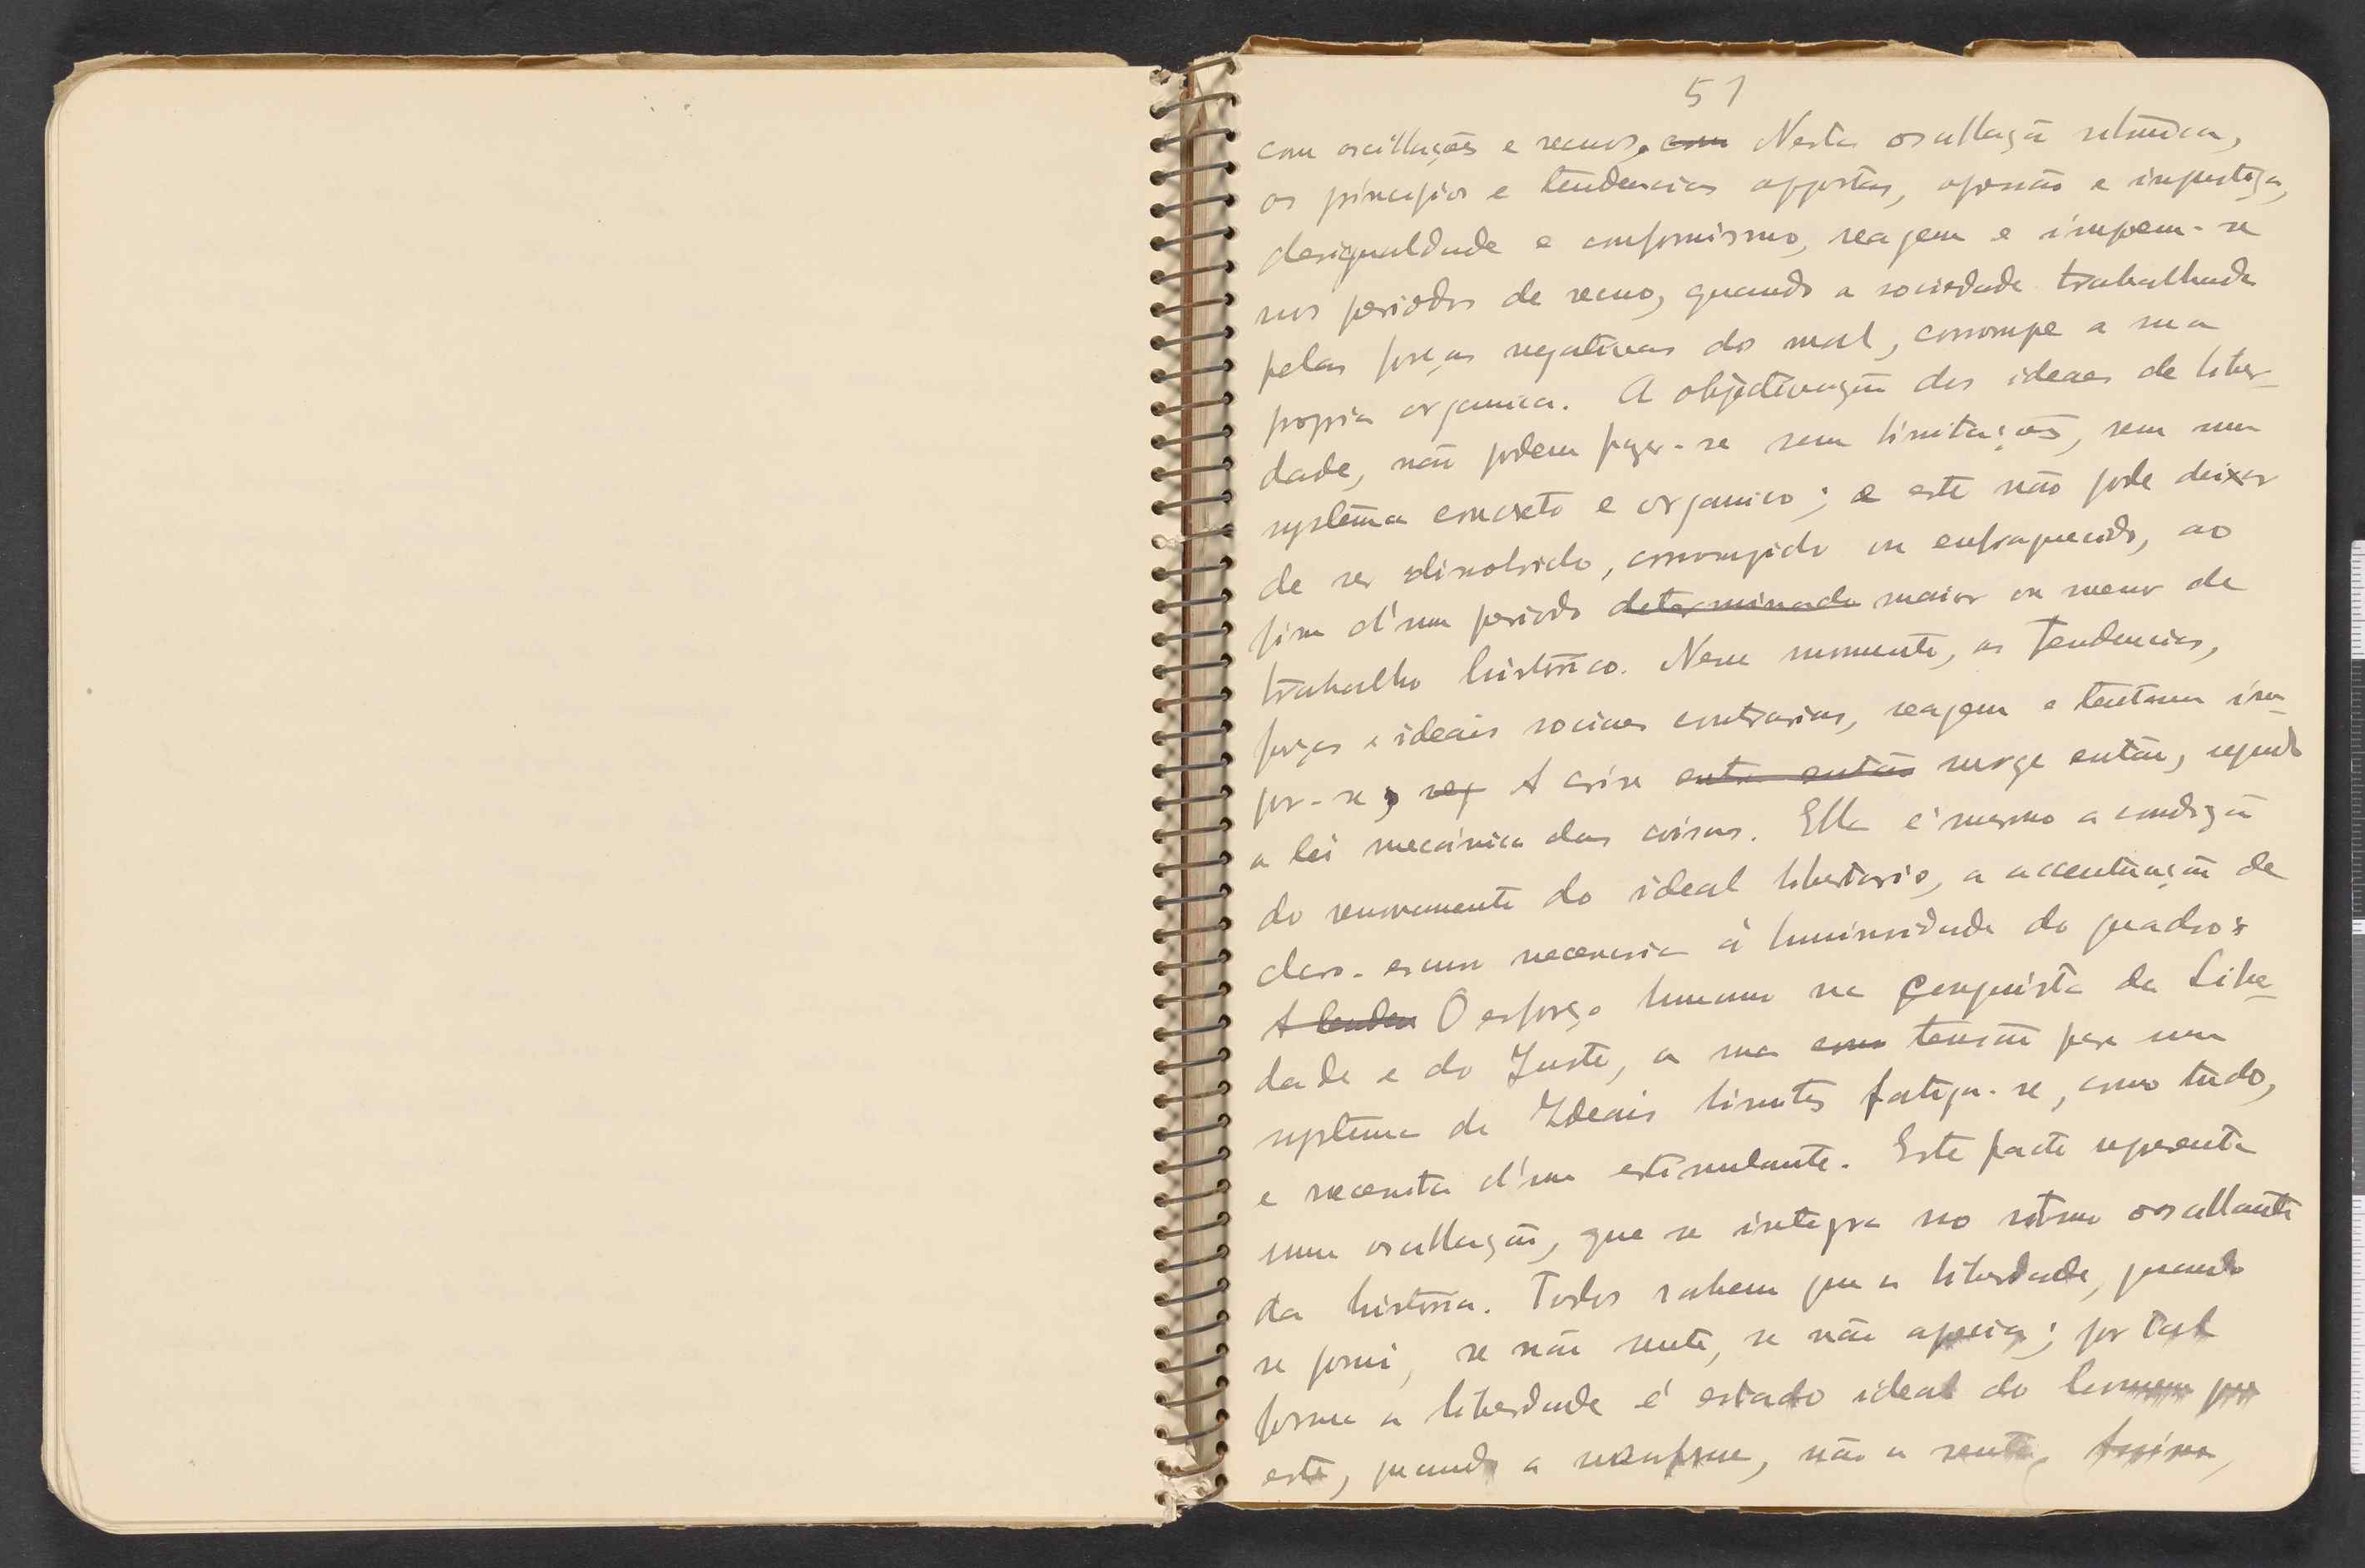 51
com oscillações e recuos. com Nesta oscillação rítmica,
os princípios e tendencias oppostas, opressão e injustiça,
desigualdade e conformismo, reagem e impoem-se
nos periodos de recuo, quando a sociedade trabalhada
pelas forças negativas do mal, corrompe a sua
propria organica. A objectivação dos ideaes de liber-
dade, não podem fazer-se sem limitações, sem um
systema concreto e organico; e este não pode deixar
de ser dissolvido, corrompido ou enfraquecido, ao
fim d'um periodo determinado maior ou menor de
trabalho histórico. Nesse momento, as tendencias,
forças e ideais sociaes contrarias, reagem e tentam im-
por-se, A crise entra então surge então, segundo
a lei mecánica das coisas. Ella é mesmo a condição
do renovamento do ideal libertario, a accentuação de
claro-escuro necessaria á luminosidade do quadro:
O esforço humano na Conquista da Liber-
dade e do Justo, a sua como tensão para um
systema de Ideais limites fatiga-se, como tudo,
e necessita d'um estimulante. Este facto representa
uma oscillação, que se integra no ritmo oscillante
da história. Todos sabem que a liberdade, quando
se possui, se não sente, se não aprecia; por tal
forma a liberdade é estado ideal do homem que
este, quando a usufrue, não a sente. Assim,